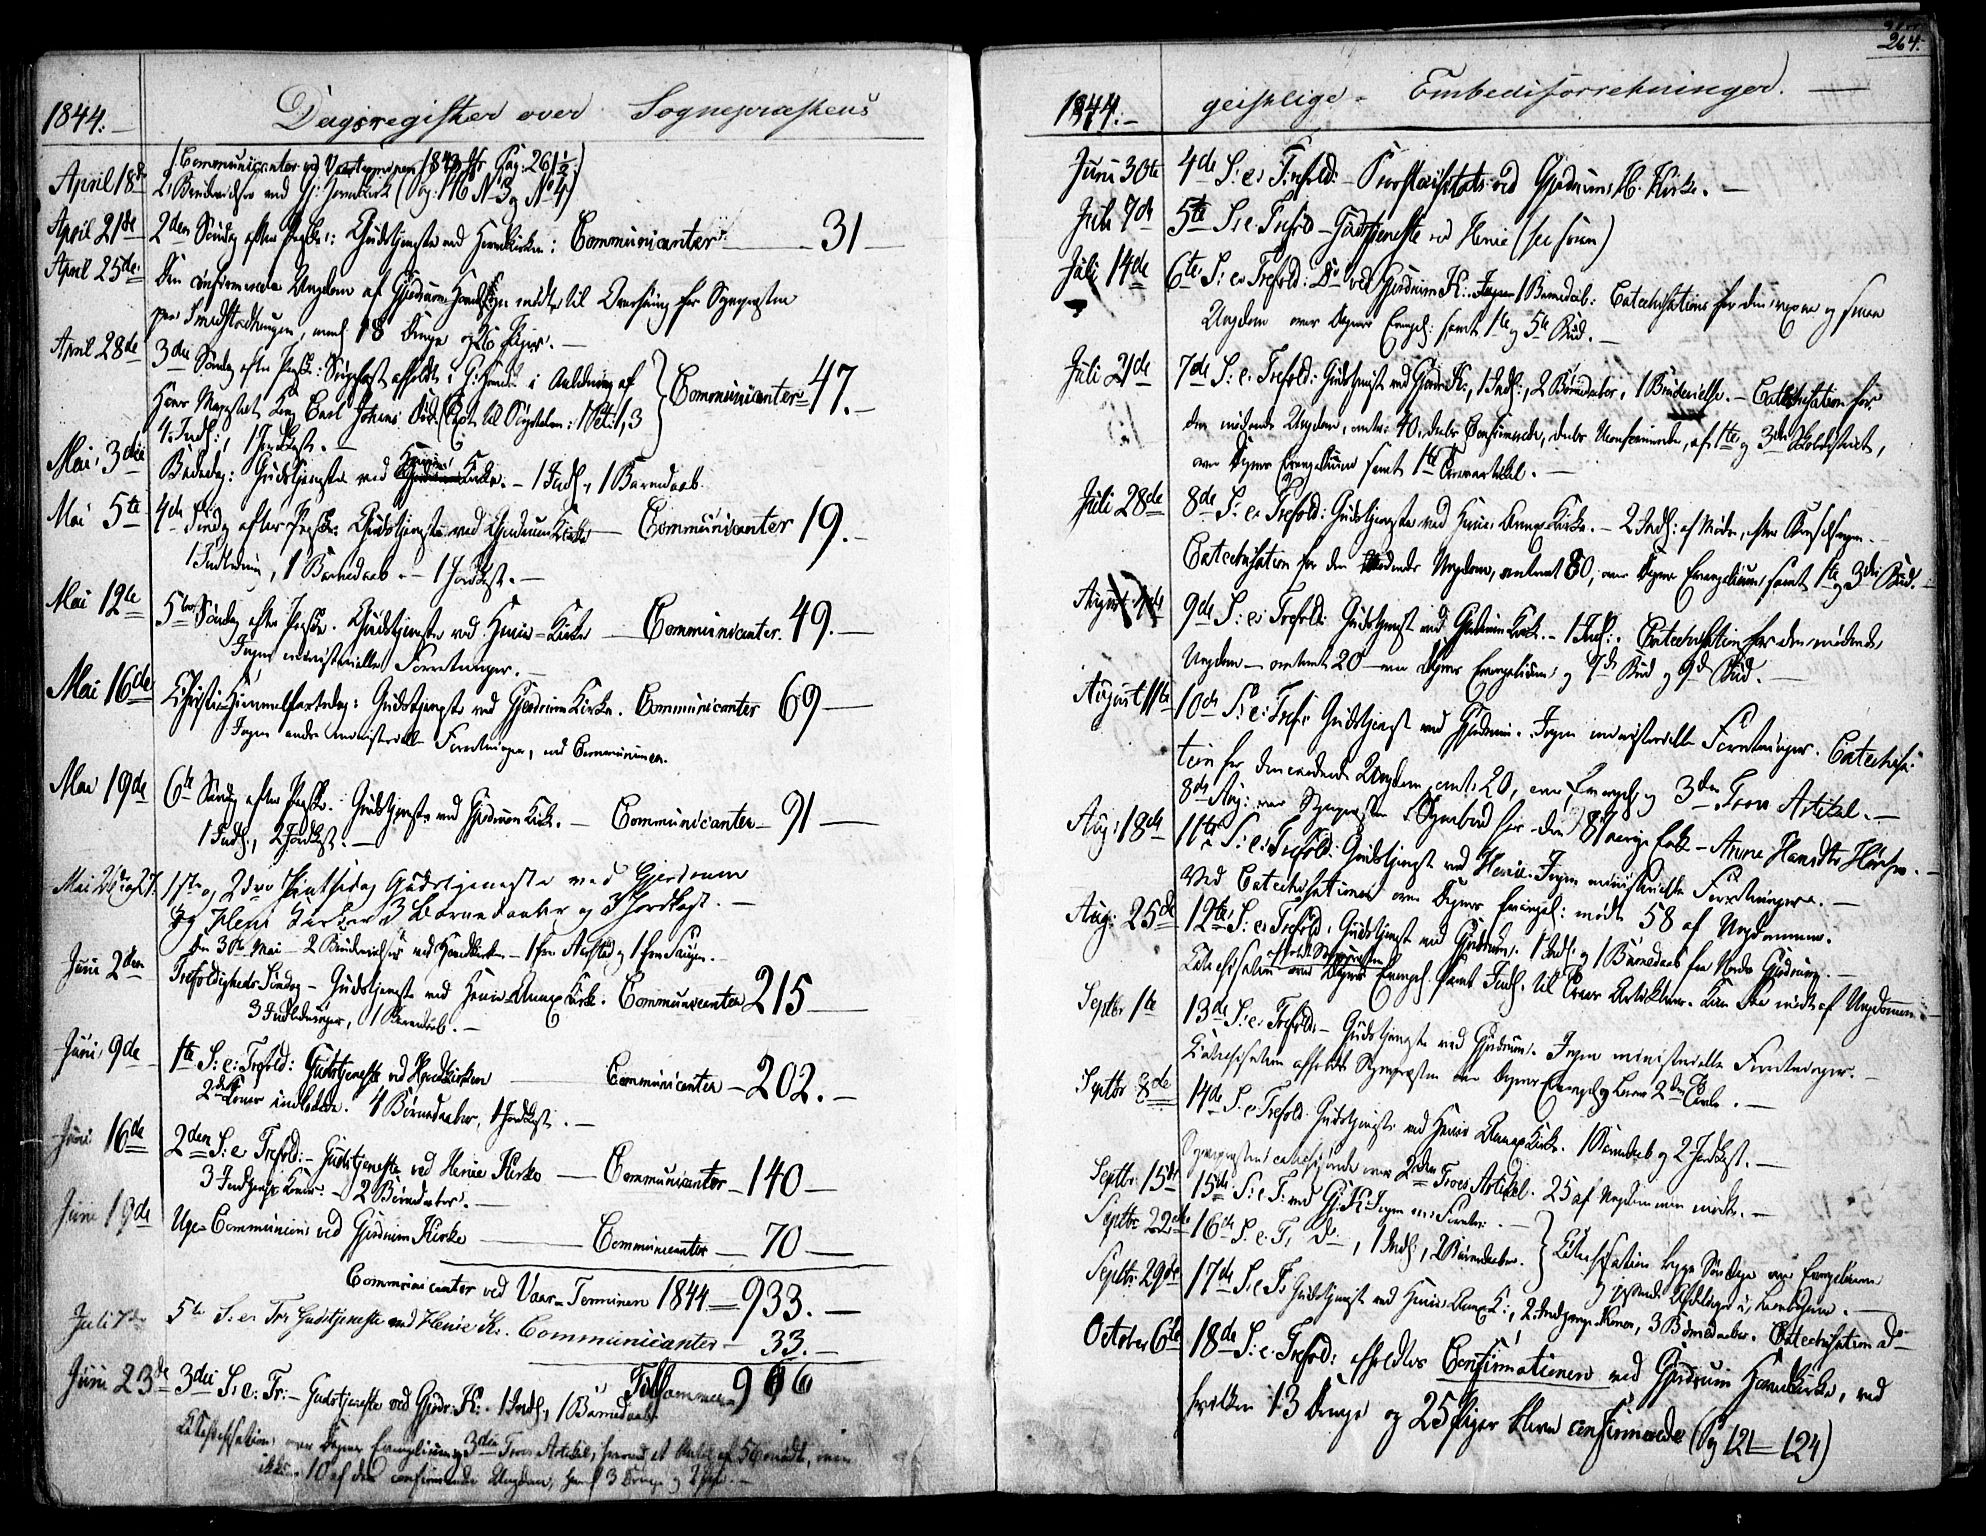 1844.
Dagsregister over Sognepræstens
April 18de
2 Brudevielser ved Gj: Hovedkirk (Pag: 116 No 3 og No 4)
April 21de 2den Søndag efter Paaske: Gudstjeneste ved Hovedkirken: Communicanter 31
April 25de Den confirmerende Ungdom af Gjerdrum Hovedsogn mødte til for Sognepræsten
18 Drenge og 26 Piger.
April 28de 3die Søndag efter Paaske: Sørgefest afholdt i Anledning af
Hans Majestæt Kong Carl Johans Død. 1 Pet: 1,3 Communicanter 47.
4 Indl:, 1 Jordkast.
Mai 3die Bededag: Gudstjeneste ved Heni Kirke. 1 Indl., 1 Barnedaab.
Mai 5te 4de Søndag efter Paaske Gudstjeneste ved Gjerdrum Kirke Communicanter 19.
1 Indledning, 1 Barnedaab. 1 Jordkast.
Mai 12te 5te Søndag efter Paaske. Gudstjeneste ved Henie Kirke Communicanter. 49.
Ingen ministerielle Forretninger.
Mai 16de Christi Himmelfartsdag: Gudstjeneste ved Gjerdrum Kirke. Communicanter 69
Ingen andre ministerielle Forretninger, end Communionen.
Mai 19de 6te Søndag efter Paaske. Gudstjeneste ved Gjerdrum Kirk. Communicanter 91
1 Indl., 2 Jordkast.
Mai 26de og 27. 1ste og 2den Pintsedag Gudstjeneste ved Gjerdrum
og Heni Kirker 3 Barnedaaber og 3 Jordkast.
Den 30te Mai 2 Brudevielser ved Hovedkirken
Juni 2den Trefoldigheds Søndag Gudstjeneste ved Henie Annex Kirke. Communicanter 215
3 Indledninger, 1 Barnedaab.
Juni 9de 1te S: e: Trefold: Gudstjeneste ved Hovedkirken Communicanter 202.
2de Koner indledede. 4 Børnedaaber, 1 Jordkast.
Juni 16de 2den S: e: Trefold: Gudstjeneste ved Henie Kirke Communicanter 140
3 Indgangs Koner. 2 Børnedaaber.
Juni 19de Uge-Communion ved Gjerdrum Kirke Communicanter 70
Communicanter ved Vaar-Terminen 1844 933.
Juli 7de 5te S: e: Tr: Gudstjeneste ved Henie K: Communicanter 33.
Tilsammen 966
Juni 23de 3die S: e: Tr: Gudstjeneste ved Gjerdr: K: 1 Indl:, 1 Barnedaab.
Katechisation over Dagens Evangelium og 3die Troes Artikel, mødt, men
10 af den confirmerende Ungdom, 3 Drenge og
264.
1844. geistlige Embedsforretninger.
Juni 30te 4de S: e: Trefold: Gjerdrums H. Kirke.
Juli 7de 5te S: e: Trefold Gudstjeneste ved Henie
Juli 14de 6te S: e: Trefold: Do ved Gjerdrum K: 1 Barnedaab: Catechisation for den voxne og smaa
Ungdom over Dagens Evangel: samt 1te og 5te Bud.
Juli 21de 7de S: e: Trefold: Gudstjeneste ved Gjerdr: K:, 1 Indl:, 2 Børnedaaber, 1 Brudevielse. Catechisation for
den mødende Ungdom, 40, deels Confirmerede, deels Uconfirmerede, af 1te og 3die Skoledistrict,
over Dagens Evangelium samt 1te Troesartikel.
Juli 28de 8de S: e: Trefold: Gudstjeneste ved Henie Annex Kirke. 2 Indl:
Catechisation for den mødende Ungdom, omtrent 80, over Dagens Evangelium samt 1te og 3die Bud.
August 4de 9de S: e: Trefold: Gudstjeneste ved Gjerdrum Kirk. 1 Indl:. Catechisation for den mødende
Ungdom omtrent 20 over Dagens Evangelium og 7de Bud og 9de Bud.
August 11te 10de S: e: Tref: Gudstjeneste ved Gjerdrum. Ingen ministerielle Forretninger. Catechisa-
tion for den mødende Ungdom, omtr: 20, over Evangel: og 3die Troes Artikel.
8de Aug: var Sognepræsten i Sognebud for den 87 aarige Enke Anne
Aug: 18de 11te S: e: Trefold: Gudstjeneste ved Henie. Ingen ministerielle Forretninger.
Ved Catechisationen over Dagens Evangel: mødte 58 af Ungdommen.
Aug: 25de 12te S: e: Trefold. Gudstjeneste ved Gjerdrum. 1 Indl: og 1 Barnedaab fra Gjerdrum.
Katechisation afholdt Sognepræsten over Dagens Evangel. samt Indl. til Troes Artiklerne. mødte af Ungdommen.
Septbr: 1te 13de S: e: Trefold: Gudstjeneste ved Gjerdrum. Ingen ministerielle Forretninger.
Katechisation afholdt Sognepræsten over Dagens Evangel: og 2den
Septbr 8de 14de S: e: Trefold: Gudstjeneste ved Henie Annex Kirke. 1 Barnedaab og 2 Jordkast.
Sognepræsten catechiserede over 2den Troes Artikel. 25 af Ungdommen mødte.
Septbr: 15de 15de S: e: T: ved Gj: K: Ingen min: Forretn:
Septbr 22de 16de S: e: T, Do, 1 Indl:, 2 Børnedaaber. Katechisation begge Søndage over Evangelierne
Septbr: 29de 17de S: e: T: Gudstjeneste ved Henie Annex K:, 2 Indgangs Koner, 3 Børnedaaber. Catechisation Do
October 6te 18de S: e: Trefold: afholdtes Confirmationen ved Gjerdrum Hovedkirke, ved
hvilken 13 Drenge og 25 Piger bleve confirmerede (Pag 121-124)